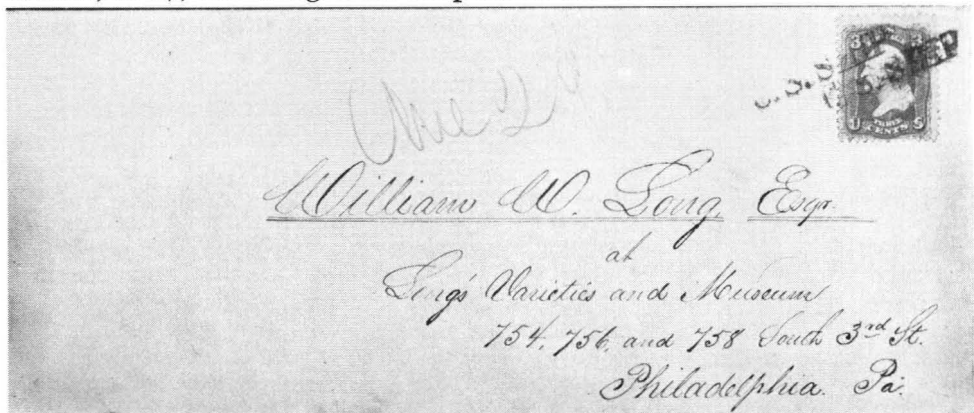 U.S. SHIP
William W. Long, Esqr.
at
Long's Varieties and Museum
754, 756, and 758 South 3rd St.
Philadelphia. Pa.